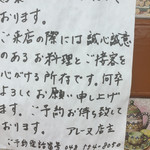 おります。
ご来店の際には誠心誠意
のあるお料理とご接客を
心がける所存です。何卒
よろしくお願い申し上げ
ます。ご予約お待ち致して
おります。
アレーヌ店主
ご予約電話番号